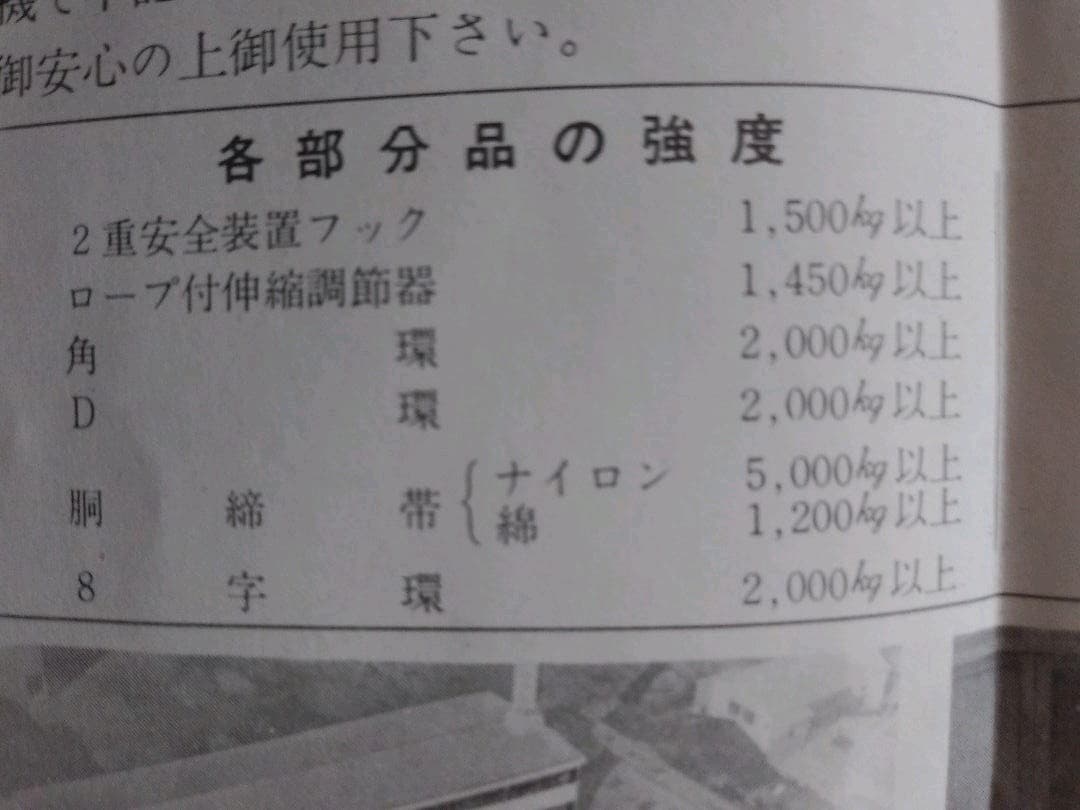 御安心の上御使用下さい。
各部分品の強度
2重安全装置フック 1,500㎏以上
ロープ付伸縮調節器 1,450㎏以上
角環 2,000㎏以上
D環 2,000㎏以上
胴締帯{ナイロン 5,000㎏以上
綿 1,200㎏以上
8字環 2,000㎏以上